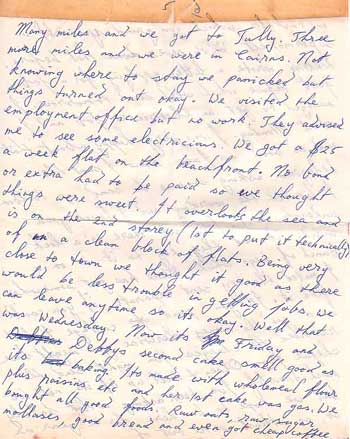 Many miles and we got to Tully. Three
more miles and we were in Cairns. Not
knowing where to stay we panicked but
things turned out okay. We visited the
employment office but no work. They advised
me to see some electricians. We got a $25
a week flat on the beachfront. No bond
or extra had to be paid so we thought
things were sweet. It overlooks the sea and
is on the 2nd storey (1st to put it technically)
of a clean block of flats. Being very
close to town we thought it good as there
would be less trouble in getting jobs. We
can leave anytime so its okay. Well that
was Wednesday. Now its Friday and
Debbys second cake smell good as
its baking. Its made with wholemeal flour
plus raisins etc and her 1st cake was gas. We
bought all good foods. Raw oats, raw sugar,
mollases, good bread and even got cheap coffee